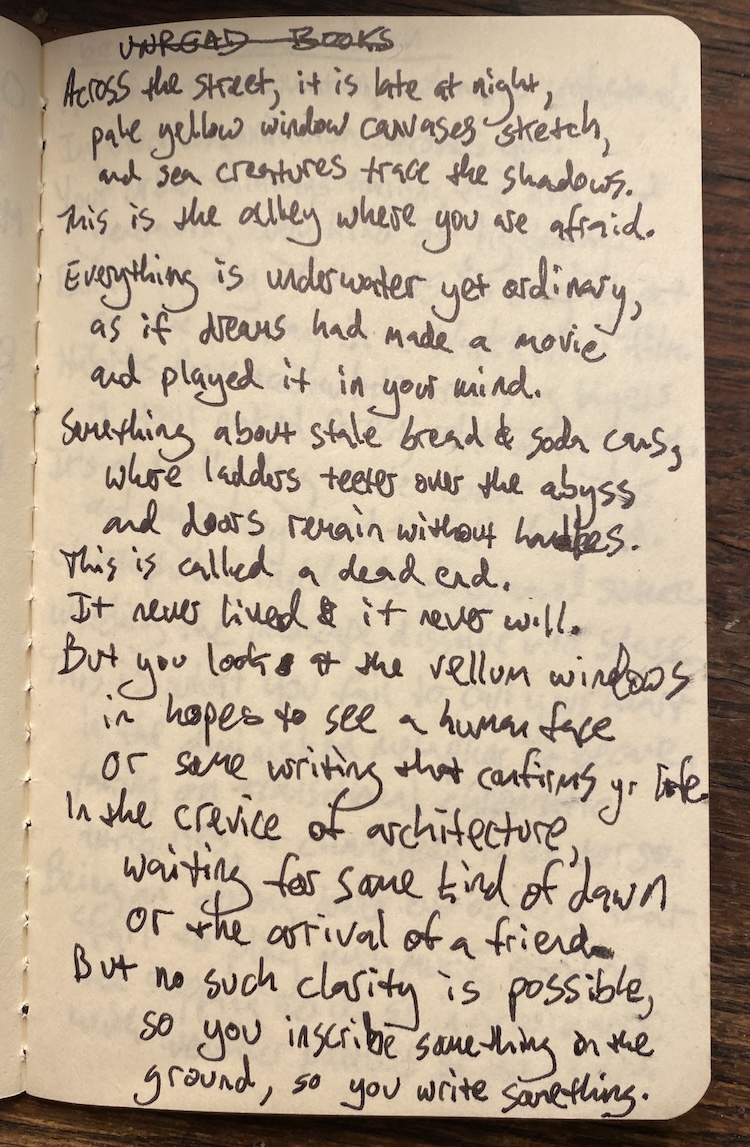 UNREAD BOOKS
Across the street, it is late at night,
pale yellow window canvases stretch,
and sea creatures trace the shadows.
This is the alley where you are afraid.
Everything is underwater yet ordinary,
as if dreams had made a movie
and played it in your mind.
Something about stale bread & soda cans,
where ladders teeter over the abyss
and doors remain without handles.
This is called a dead end.
It never lived & it never will.
But you look at the vellum windows
in hopes to see a human face
or some writing that confirms yr life.
In the crevice of architecture,
waiting for some kind of dawn
or the arrival of a friend.
But no such clarity is possible,
so you inscribe something on the
ground, so you write something.